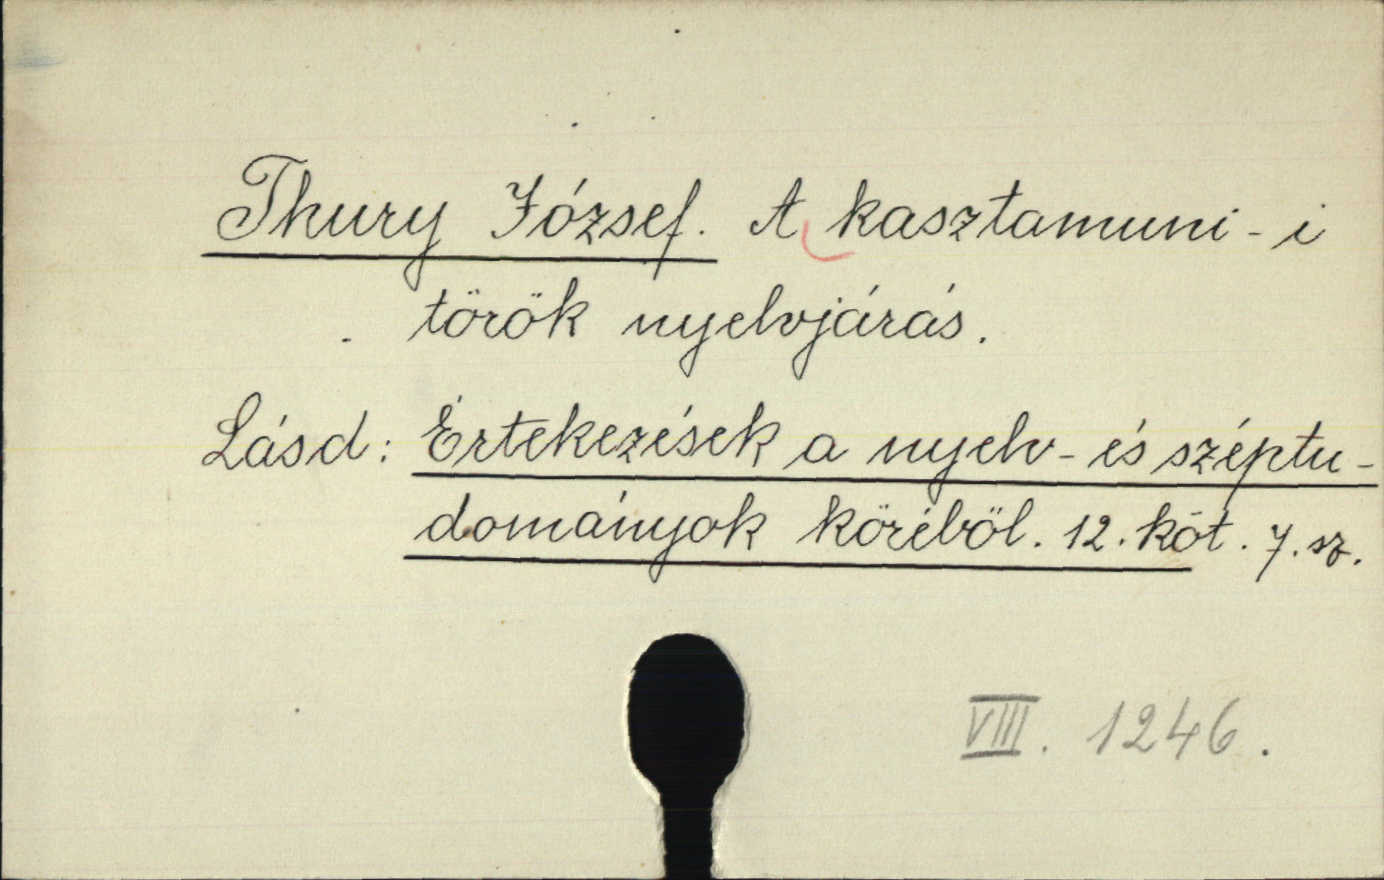 Thury József. A kasztamuni-i
török nyelvjárás.
Lásd: Értekezések a nyelv- és széptu-
dományok köréből. 12. köt. 7. sz.
VIII. 1246.